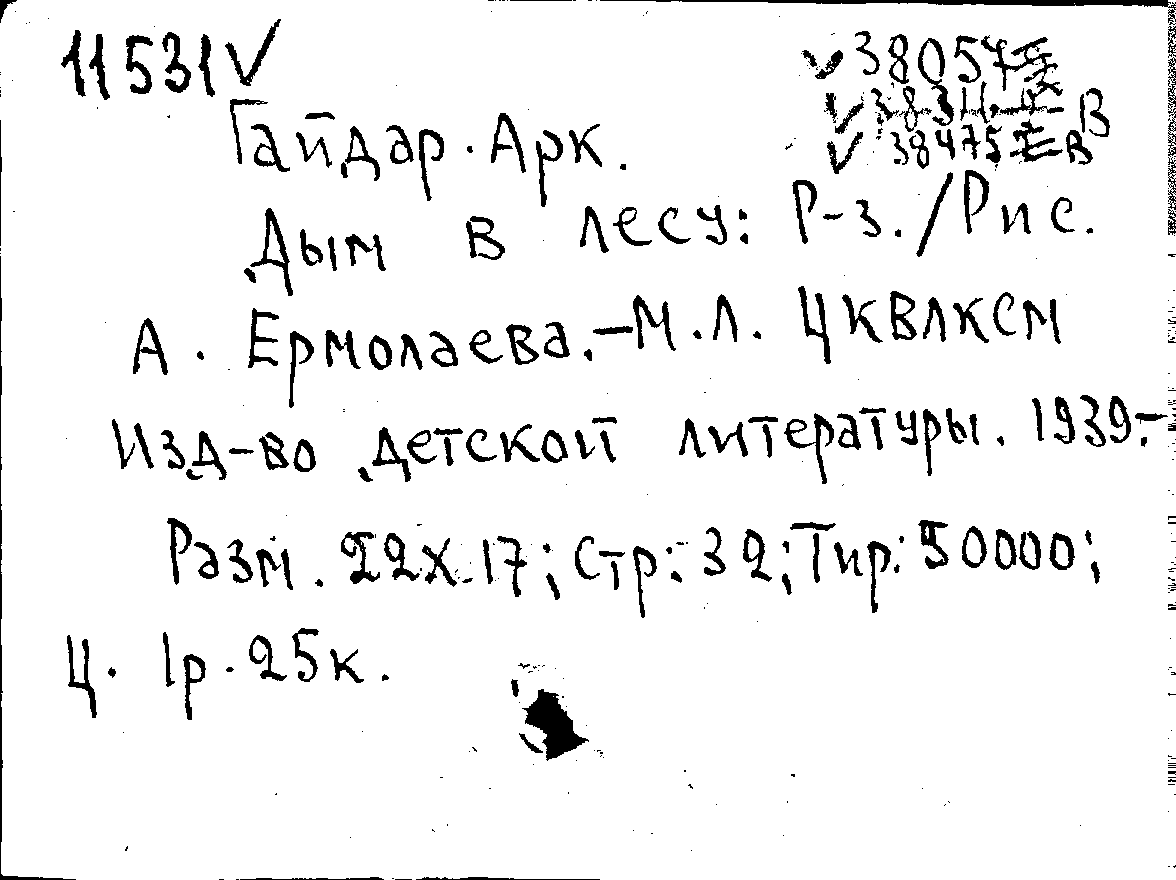 11531✓
✓38057
✓ В
✓38475 В
Гайдар. Арк.
Дым в лесу: Р-з./Рис.
А. Ермолаева.-М.Л. ЦКВЛКСМ
Изд-во детской литературы. 1939.-
Разм. 22х17; Стр: 32; Тир: 50000;
Ц. 1р. 25к.